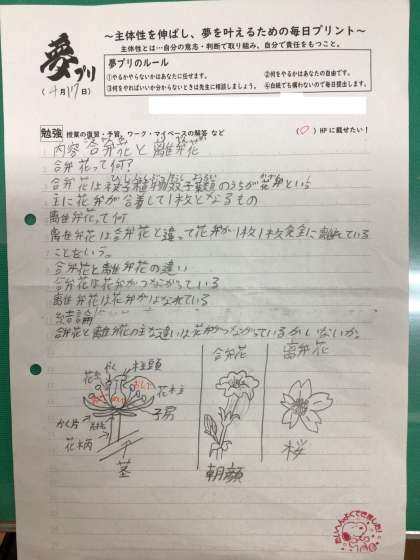 夢プリ
(4月17日)
～主体性を伸ばし、夢を叶えるための毎日プリント～
主体性とは…自分の意志・判断で取り組み、自分で責任をもつこと。
夢プリのルール
①やるかやらないかはあなたに任せます。 ②何をやるかはあなたの自由です。
③何をやればいいか分からないときは先生に相談しましょう。 ④白紙でも構わないので毎日提出します。
勉強 授業の復習・予習、ワーク・マイペースの解答 など (○) HPに載せたい!
内容 合弁花と離弁花
合弁花って何?
合弁花は被子植物双子葉類のうちが花弁という
主に花が合着して1枚となるもの
離弁花って何
離弁花は合弁花と違って花弁が1枚1枚完全に離れている
ことをいう。
合弁花と離弁花の違い
合弁花は花弁がつながっている
離弁花は花弁がはなれている
結論
合弁花と離弁花の主な違いは花弁がつながっているかいないか。
合弁花
離弁花
やく
柱頭
花糸
めしべ
花主
子房
がく片
花柄
茎
朝顔
桜
たいへんよくできました!